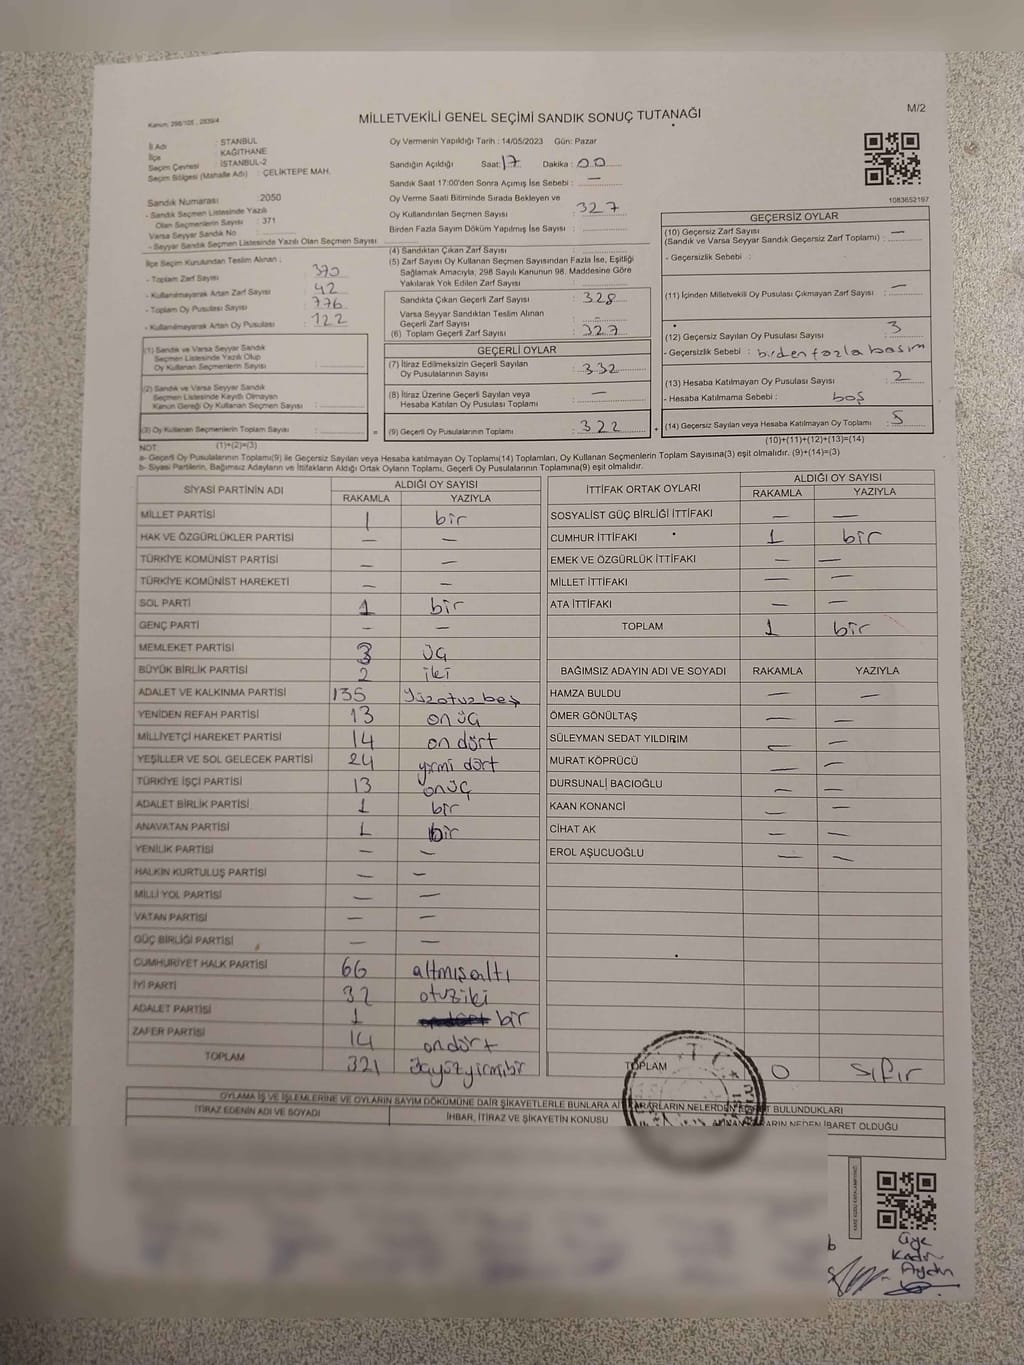 MİLLETVEKİLİ GENEL SEÇİMİ SANDIK SONUÇ TUTANAĞI
M/2
Kanun: 298/105 , 2839/4
İl Adı : İSTANBUL
İlçe : KAĞITHANE
Seçim Çevresi : İSTANBUL-2
Seçim Bölgesi (Mahalle Adı) : ÇELİKTEPE MAH.
Oy Vermenin Yapıldığı Tarih : 14/05/2023 Gün: Pazar
Sandığın Açıldığı Saat: 17 Dakika : 00
Sandık Saat 17:00'den Sonra Açımış İse Sebebi : —
Oy Verme Saati Bitiminde Sırada Bekleyen ve
Oy Kullandırılan Seçmen Sayısı : 327
Birden Fazla Sayım Döküm Yapılmış İse Sayısı :
1083652197
Sandık Numarası : 2050
- Sandık Seçmen Listesinde Yazılı
Olan Seçmenlerin Sayısı : 371
Varsa Seyyar Sandık No :
- Seyyar Sandık Seçmen Listesinde Yazılı Olan Seçmen Sayısı :
İlçe Seçim Kurulundan Teslim Alınan ;
- Toplam Zarf Sayısı : 370
- Kullanılmayarak Artan Zarf Sayısı : 42
- Toplam Oy Pusulası Sayısı : 776
- Kullanılmayarak Artan Oy Pusulası : 122
(1) Sandık ve Varsa Seyyar Sandık
Seçmen Listesinde Yazılı Olup
Oy Kullanan Seçmenlerin Sayısı :
(2) Sandık ve Varsa Seyyar Sandık
Seçmen Listesinde Kayıtlı Olmayan
Kanun Gereği Oy Kullanan Seçmen Sayısı :
(3) Oy Kullanan Seçmenlerin Toplam Sayısı :
(1)+(2)=(3)
(4) Sandıktan Çıkan Zarf Sayısı :
(5) Zarf Sayısı Oy Kullanan Seçmen Sayısından Fazla İse, Eşitliği
Sağlamak Amacıyla, 298 Sayılı Kanunun 98. Maddesine Göre
Yakılarak Yok Edilen Zarf Sayısı :
Sandıkta Çıkan Geçerli Zarf Sayısı : 328
Varsa Seyyar Sandıktan Teslim Alınan
Geçerli Zarf Sayısı : —
(6) Toplam Geçerli Zarf Sayısı : 327
GEÇERLİ OYLAR
(7) İtiraz Edilmeksizin Geçerli Sayılan
Oy Pusulalarının Sayısı : 332
(8) İtiraz Üzerine Geçerli Sayılan veya
Hesaba Katılan Oy Pusulası Toplamı : —
= (9) Geçerli Oy Pusulalarının Toplamı : 322 +
GEÇERSİZ OYLAR
(10) Geçersiz Zarf Sayısı
(Sandık ve Varsa Seyyar Sandık Geçersiz Zarf Toplamı) : —
- Geçersizlik Sebebi :
(11) İçinden Milletvekili Oy Pusulası Çıkmayan Zarf Sayısı : —
(12) Geçersiz Sayılan Oy Pusulası Sayısı : 3
- Geçersizlik Sebebi : birden fazla basım
(13) Hesaba Katılmayan Oy Pusulası Sayısı : 2
- Hesaba Katılmama Sebebi : boş
(14) Geçersiz Sayılan veya Hesaba Katılmayan Oy Toplamı : 5
(10)+(11)+(12)+(13)=(14)
NOT:
a- Geçerli Oy Pusulalarının Toplamı(9) ile Geçersiz Sayılan veya Hesaba Katılmayan Oy Toplamı(14) Toplamları, Oy Kullanan Seçmenlerin Toplam Sayısına(3) eşit olmalıdır. (9)+(14)=(3)
b- Siyasi Partilerin, Bağımsız Adayların ve İttifakların Aldığı Ortak Oyların Toplamı, Geçerli Oy Pusulalarının Toplamına(9) eşit olmalıdır.
SİYASİ PARTİNİN ADI ALDIĞI OY SAYISI
RAKAMLA YAZIYLA
MİLLET PARTİSİ 1 bir
HAK VE ÖZGÜRLÜKLER PARTİSİ — —
TÜRKİYE KOMÜNİST PARTİSİ — —
TÜRKİYE KOMÜNİST HAREKETİ — —
SOL PARTİ 1 bir
GENÇ PARTİ — —
MEMLEKET PARTİSİ 3 üç
BÜYÜK BİRLİK PARTİSİ 2 iki
ADALET VE KALKINMA PARTİSİ 135 yüzotuzbeş
YENİDEN REFAH PARTİSİ 13 on üç
MİLLİYETÇİ HAREKET PARTİSİ 14 on dört
YEŞİLLER VE SOL GELECEK PARTİSİ 24 yirmi dört
TÜRKİYE İŞÇİ PARTİSİ 13 onüç
ADALET BİRLİK PARTİSİ 1 bir
ANAVATAN PARTİSİ 1 bir
YENİLİK PARTİSİ — —
HALKIN KURTULUŞ PARTİSİ — —
MİLLİ YOL PARTİSİ — —
VATAN PARTİSİ — —
GÜÇ BİRLİĞİ PARTİSİ — —
CUMHURİYET HALK PARTİSİ 66 altmışaltı
İYİ PARTİ 32 otuziki
ADALET PARTİSİ 1 bir
ZAFER PARTİSİ 14 ondört
TOPLAM 321 üçyüzyirmibir
İTTİFAK ORTAK OYLARI ALDIĞI OY SAYISI
RAKAMLA YAZIYLA
SOSYALİST GÜÇ BİRLİĞİ İTTİFAKI — —
CUMHUR İTTİFAKI 1 bir
EMEK VE ÖZGÜRLÜK İTTİFAKI — —
MİLLET İTTİFAKI — —
ATA İTTİFAKI — —
TOPLAM 1 bir
BAĞIMSIZ ADAYIN ADI VE SOYADI RAKAMLA YAZIYLA
HAMZA BULDU — —
ÖMER GÖNÜLTAŞ — —
SÜLEYMAN SEDAT YILDIRIM — —
MURAT KÖPRÜCÜ — —
DURSUNALİ BACIOĞLU — —
KAAN KONANCİ — —
CİHAT AK — —
EROL AŞUCUOĞLU — —
TOPLAM 0 sıfır
T.C.
OYLAMA İŞ VE İŞLEMLERİNE VE OYLARIN SAYIM DÖKÜMÜNE DAİR ŞİKAYETLERLE BUNLARA KARARLARIN NELERDEN BULUNDUKLARI
İTİRAZ EDENİN ADI VE SOYADI İHBAR, İTİRAZ VE ŞİKAYETİN KONUSU NEDEN İBARET OLDUĞU
üye
Kadir
Aydın